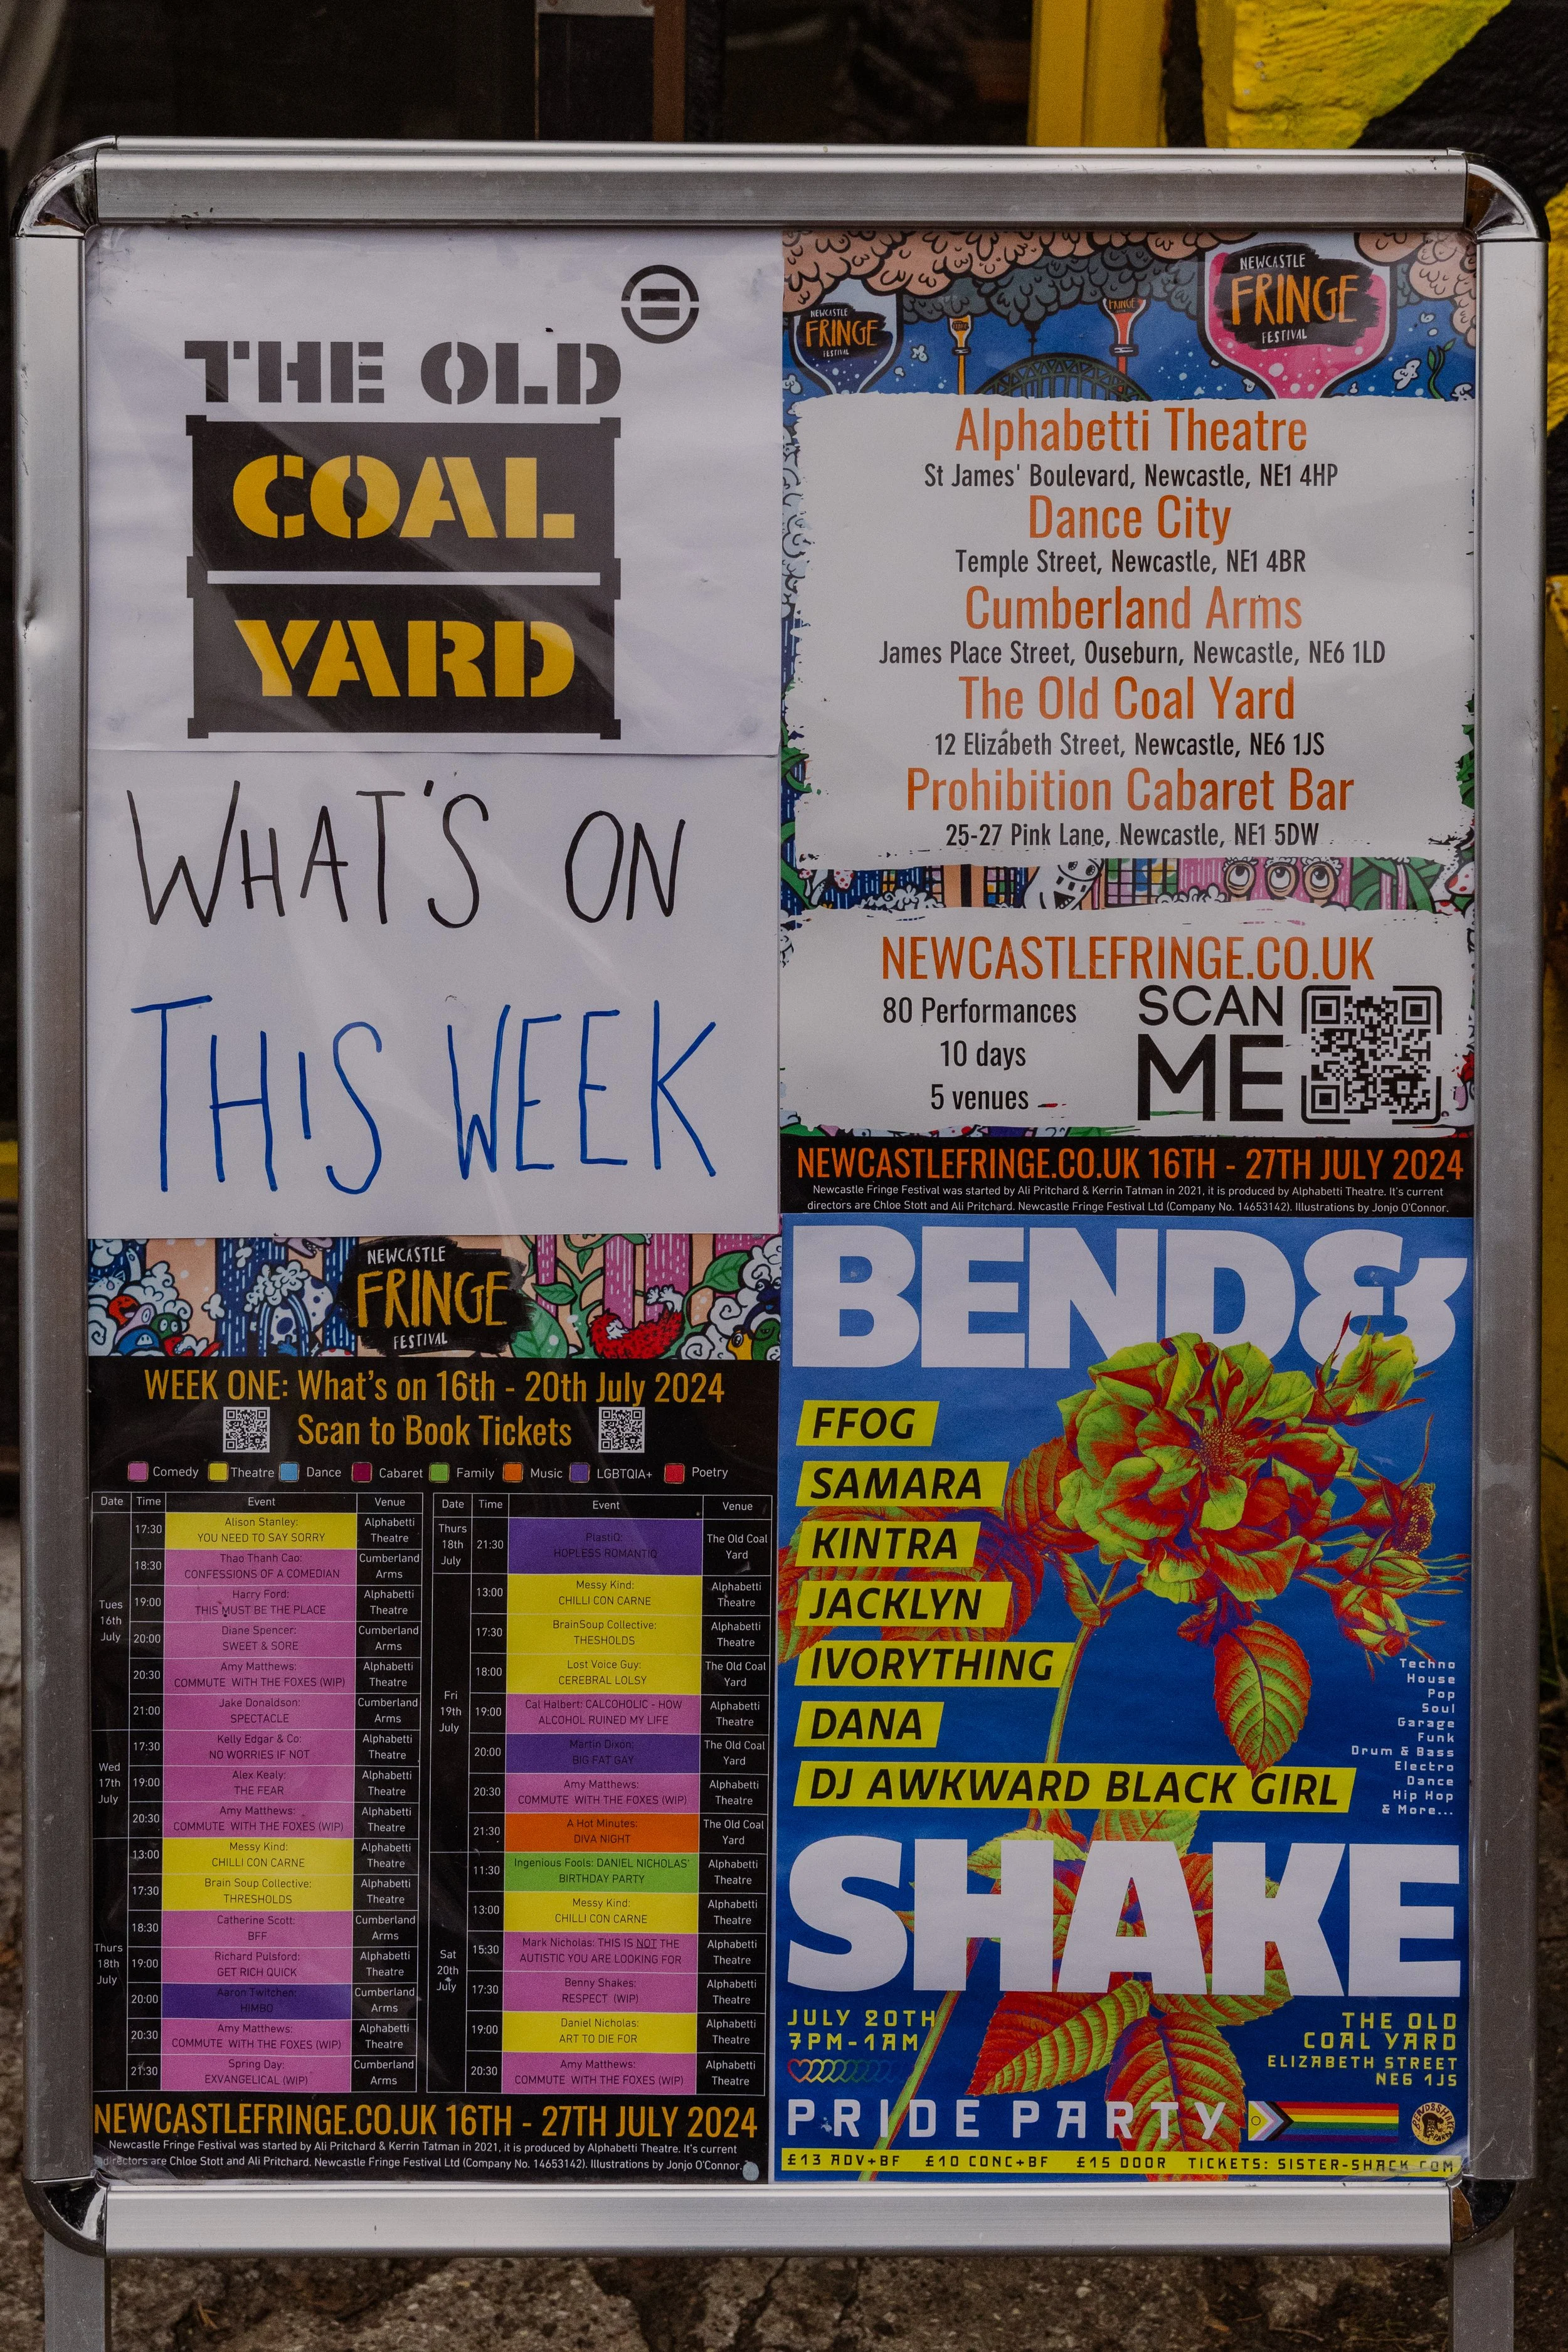 THE OLD
COAL
YARD
WHAT'S ON
THIS WEEK
NEWCASTLE
FRINGE
FESTIVAL
WEEK ONE: What's on 16th - 20th July 2024
Scan to Book Tickets
Comedy Theatre Dance Cabaret Family Music LGBTQIA+ Poetry
Date Time Event Venue
Tues
16th
July
17:30 Alison Stanley: YOU NEED TO SAY SORRY Alphabetti Theatre
18:30 Thao Thanh Cao: CONFESSIONS OF A COMEDIAN Cumberland Arms
19:00 Harry Ford: THIS MUST BE THE PLACE Alphabetti Theatre
20:00 Diane Spencer: SWEET & SORE Cumberland Arms
20:30 Amy Matthews: COMMUTE WITH THE FOXES (WIP) Alphabetti Theatre
21:00 Jake Donaldson: SPECTACLE Cumberland Arms
Wed
17th
July
17:30 Kelly Edgar & Co: NO WORRIES IF NOT Alphabetti Theatre
19:00 Alex Kealy: THE FEAR Alphabetti Theatre
20:30 Amy Matthews: COMMUTE WITH THE FOXES (WIP) Alphabetti Theatre
Thurs
18th
July
13:00 Messy Kind: CHILLI CON CARNE Alphabetti Theatre
17:30 Brain Soup Collective: THRESHOLDS Alphabetti Theatre
18:30 Catherine Scott: BFF Cumberland Arms
19:00 Richard Pulsford: GET RICH QUICK Alphabetti Theatre
20:00 Aaron Twitchen: HIMBO Cumberland Arms
20:30 Amy Matthews: COMMUTE WITH THE FOXES (WIP) Alphabetti Theatre
21:30 Spring Day: EXVANGELICAL (WIP) Cumberland Arms
Date Time Event Venue
Thurs
18th
July
21:30 PlastiQ: HOPLESS ROMANTIQ The Old Coal Yard
Fri
19th
July
13:00 Messy Kind: CHILLI CON CARNE Alphabetti Theatre
17:30 BrainSoup Collective: THESHOLDS Alphabetti Theatre
18:00 Lost Voice Guy: CEREBRAL LOLSY The Old Coal Yard
19:00 Cal Halbert: CALCOHOLIC - HOW ALCOHOL RUINED MY LIFE Alphabetti Theatre
20:00 Martin Dixon: BIG FAT GAY The Old Coal Yard
20:30 Amy Matthews: COMMUTE WITH THE FOXES (WIP) Alphabetti Theatre
21:30 A Hot Minutes: DIVA NIGHT The Old Coal Yard
Sat
20th
July
11:30 Ingenious Fools: DANIEL NICHOLAS' BIRTHDAY PARTY Alphabetti Theatre
13:00 Messy Kind: CHILLI CON CARNE Alphabetti Theatre
15:30 Mark Nicholas: THIS IS NOT THE AUTISTIC YOU ARE LOOKING FOR Alphabetti Theatre
17:30 Benny Shakes: RESPECT (WIP) Alphabetti Theatre
19:00 Daniel Nicholas: ART TO DIE FOR Alphabetti Theatre
20:30 Amy Matthews: COMMUTE WITH THE FOXES (WIP) Alphabetti Theatre
NEWCASTLEFRINGE.CO.UK 16TH - 27TH JULY 2024
Newcastle Fringe Festival was started by Ali Pritchard & Kerrin Tatman in 2021, it is produced by Alphabetti Theatre. It's current
directors are Chloe Stott and Ali Pritchard. Newcastle Fringe Festival Ltd (Company No. 14653142). Illustrations by Jonjo O'Connor.
NEWCASTLE
FRINGE
FESTIVAL
FRINGE
NEWCASTLE
FRINGE
FESTIVAL
Alphabetti Theatre
St James' Boulevard, Newcastle, NE1 4HP
Dance City
Temple Street, Newcastle, NE1 4BR
Cumberland Arms
James Place Street, Ouseburn, Newcastle, NE6 1LD
The Old Coal Yard
12 Elizabeth Street, Newcastle, NE6 1JS
Prohibition Cabaret Bar
25-27 Pink Lane, Newcastle, NE1 5DW
NEWCASTLEFRINGE.CO.UK
80 Performances
10 days
5 venues
SCAN
ME
NEWCASTLEFRINGE.CO.UK 16TH - 27TH JULY 2024
Newcastle Fringe Festival was started by Ali Pritchard & Kerrin Tatman in 2021, it is produced by Alphabetti Theatre. It's current
directors are Chloe Stott and Ali Pritchard. Newcastle Fringe Festival Ltd (Company No. 14653142). Illustrations by Jonjo O'Connor.
BEND&
FFOG
SAMARA
KINTRA
JACKLYN
IVORYTHING
DANA
DJ AWKWARD BLACK GIRL
Techno
House
Pop
Soul
Garage
Funk
Drum & Bass
Electro
Dance
Hip Hop
& More...
SHAKE
JULY 20TH
7PM-1AM
THE OLD
COAL YARD
ELIZABETH STREET
NE6 1JS
PRIDE PARTY
£13 ADV+BF £10 CONC+BF £15 DOOR TICKETS: SISTER-SHACK.COM